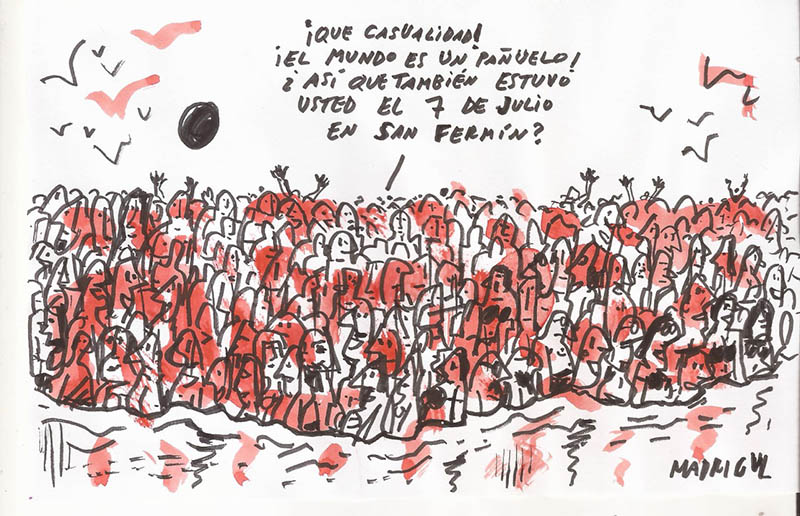 ¡QUE CASUALIDAD!
¡EL MUNDO ES UN PAÑUELO!
¿ASÍ QUE TAMBIÉN ESTUVO
USTED EL 7 DE JULIO
EN SAN FERMÍN?
MADRIGAL